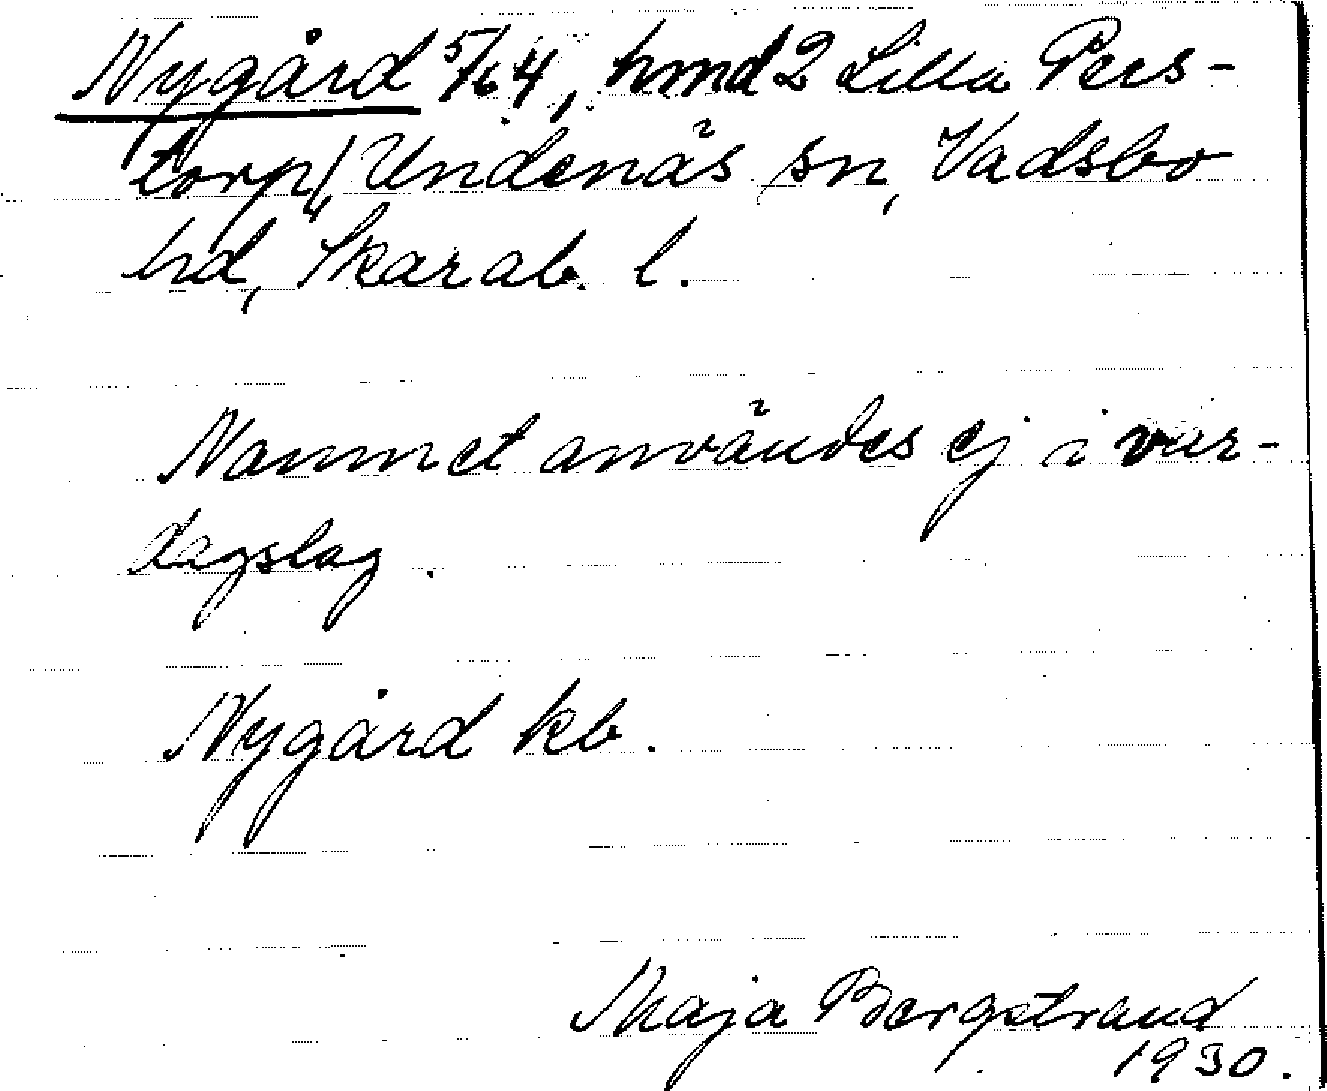 Nygård 5/64, hmd 2 Lilla Pers-
torp, Undenäs sn, Vadsbo
hd, Skarab. l.
Namnet användes ej i var-
dagslag.
Nygård kb.
Maja Bergstrand
1930.